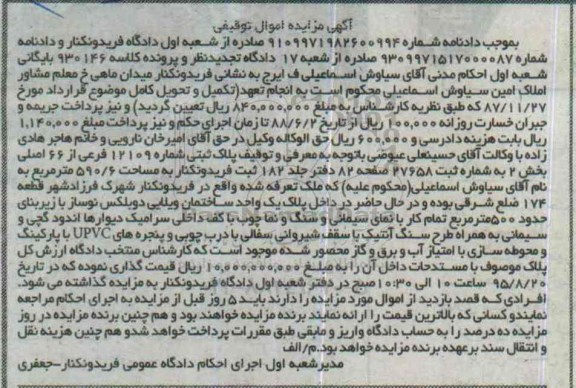 آگهی مزایده اموال توقیفی
بموجب دادنامه شماره ۹۱۰۹۹۷۱۹۸۲۶۰۰۹۹۴ صادره از شعبه اول دادگاه فریدونکنار و دادنامه
شماره ۹۳۰۹۹۷۱۵۱۷۰۰۰۰۸۷ صادره از شعبه ۱۷ دادگاه تجدیدنظر و پرونده کلاسه ۹۳۰۱۴۶ بایگانی
شعبه اول احکام مدنی آقای سیاوش اسماعیلی ف ایرج به نشانی فریدونکنار میدان ماهی خ معلم مشاور
املاک امین سیاوش اسماعیلی محکوم است به انجام تعهد(تکمیل و تحویل کامل موضوع قرارداد مورخ
۸۷/۱۱/۲۷ که طبق نظریه کارشناس به مبلغ ۸۴۰,۰۰۰,۰۰۰ ریال تعیین گردید) و نیز پرداخت جریمه و
جبران خسارت روزانه ۱۰۰,۰۰۰ ریال از تاریخ ۸۸/۶/۲ تا زمان اجرای حکم و نیز پرداخت مبلغ ۱,۱۴۰,۰۰۰
ریال بابت هزینه دادرسی و ۶۰۰,۰۰۰ ریال حق الوکاله وکیل در حق آقای امیرخان نارویی و خانم هاجر هادی
زاده با وکالت آقای حسینعلی عیوضی باتوجه به معرفی و توقیف پلاک ثبتی شماره ۱۲۱۰۹ فرعی از ۶۶ اصلی
بخش ۲ به شماره ثبت ۲۷۶۵۸ صفحه ۸۲ دفتر جلد ۱۸۲ ثبت فریدونکنار به مساحت ۵۹۰/۶ مترمربع به
نام آقای سیاوش اسماعیلی(محکوم علیه) که ملک تعرفه شده واقع در فریدونکنار شهرک فرزادشهر قطعه
۱۷۴ ضلع شرقی بوده و در حال حاضر در داخل پلاک یک واحد ساختمان ویلایی دوبلکس نوساز با زیربنای
حدود ۵۰۰مترمربع تمام کار با نمای سیمانی و سنگ و نما چوب با کف داخلی سرامیک دیوارها اندود گچی و
سیمانی به همراه طرح سنگ آنتیک با سقف شیروانی سفالی با درب چوبی و پنجره های UPVC با پارکینگ
و محوطه سازی با امتیاز آب و برق و گاز محصور شده موجود است که کارشناس منتخب دادگاه ارزش کل
پلاک موصوف با مستحدثات داخل آن را به مبلغ ۱۰,۰۰۰,۰۰۰,۰۰۰ ریال قیمت گذاری نموده که در تاریخ
۹۵/۸/۲۰ ساعت ۱۰ الی ۱۰:۳۰ صبح در دفتر شعبه اول دادگاه فریدونکنار به مزایده گذاشته می شود.
افرادی که قصد بازدید از اموال مورد مزایده را دارند باید ۵ روز قبل از مزایده به اجرای احکام مراجعه
نمایندو کسانی که بالاترین قیمت را ارائه نمایند برنده مزایده خواهند بود و هم چنین برنده مزایده در روز
مزایده ده درصد را به حساب دادگاه واریز و مابقی طبق مقررات پرداخت خواهد شدو هم چنین هزینه نقل
و انتقال سند برعهده برنده مزایده خواهد بود.م/الف
مدیرشعبه اول اجرای احکام دادگاه عمومی فریدونکنار-جعفری